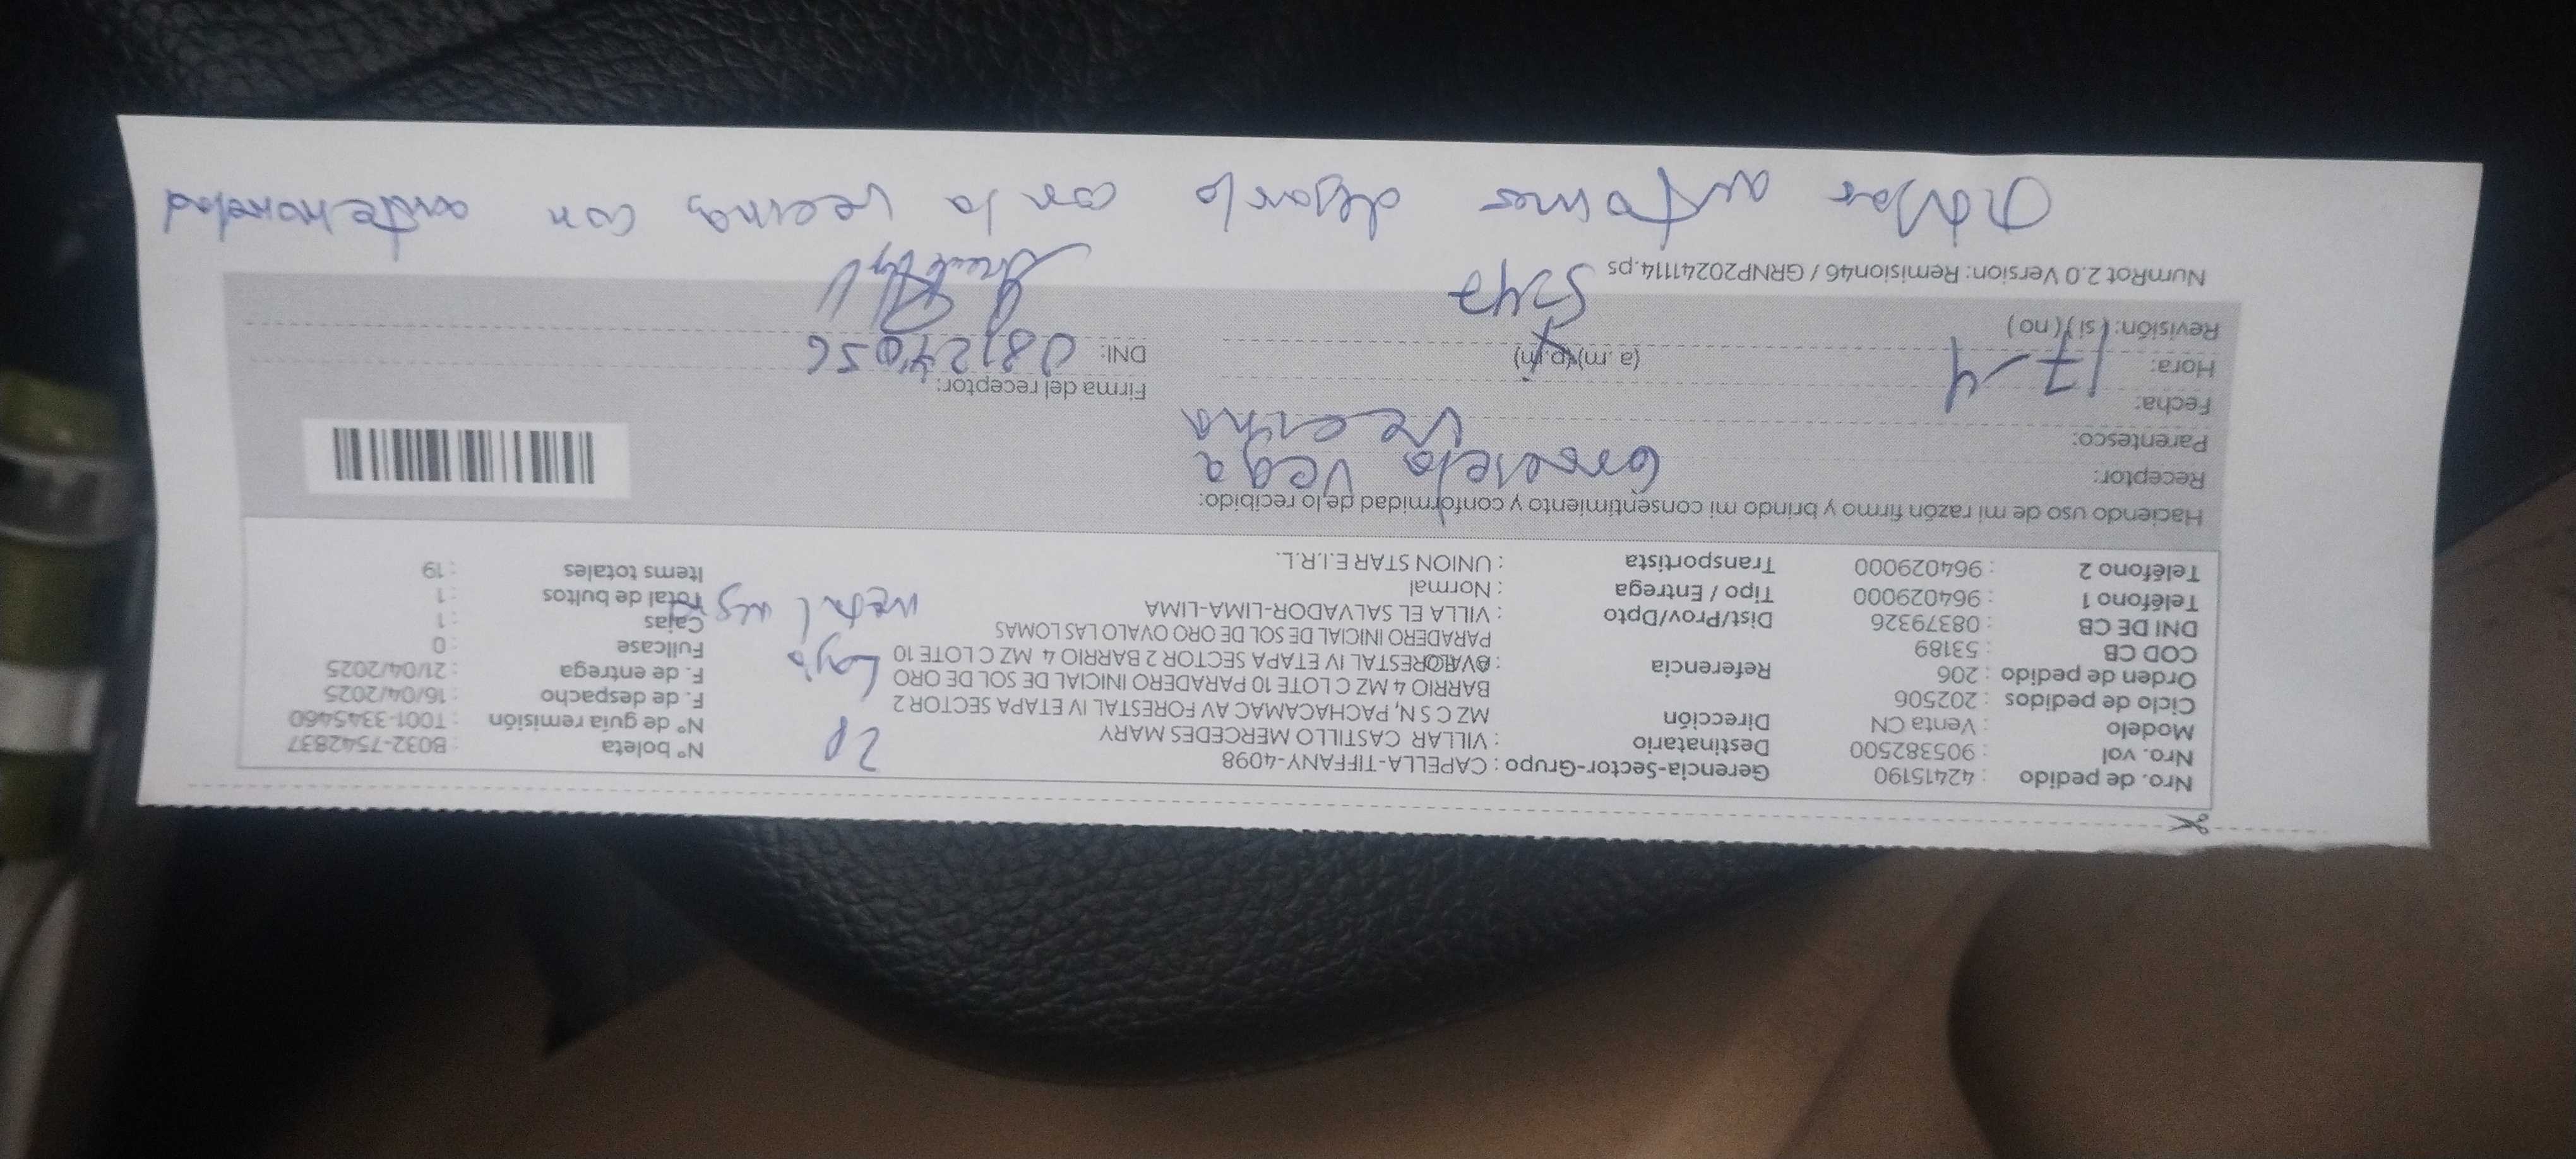 Nro. de pedido : 42415190
Nro. vol : 905382500
Modelo : Venta CN
Ciclo de pedidos : 202506
Orden de pedido : 206
COD CB : 53189
DNI DE CB : 08379326
Teléfono 1 : 964029000
Teléfono 2 : 964029000
Gerencia-Sector-Grupo : CAPELLA-TIFFANY-4098
Destinatario : VILLAR CASTILLO MERCEDES MARY
Dirección MZ C S N, PACHACAMAC AV FORESTAL IV ETAPA SECTOR 2
BARRIO 4 MZ C LOTE 10 PARADERO INICIAL DE SOL DE ORO
OVALO
Referencia : AV FORESTAL IV ETAPA SECTOR 2 BARRIO 4 MZ C LOTE 10
PARADERO INICIAL DE SOL DE ORO OVALO LAS LOMAS
Dist/Prov/Dpto : VILLA EL SALVADOR-LIMA-LIMA
Tipo / Entrega : Normal
Transportista : UNION STAR E.I.R.L.
2P
N° boleta : B032-7542837
N° de guía remisión : T001-3345460
F. de despacho : 16/04/2025
F. de entrega : 21/04/2025
Fullcase : 0
Cajas : 1
Total de bultos : 1
Items totales : 19
Haciendo uso de mi razón firmo y brindo mi consentimiento y conformidad de lo recibido:
Receptor: Graciela Vega
Parentesco: Vecina
Fecha: 17-4
Hora: (a.m)(p.m)
Revisión: (si)(no)
Firma del receptor:
DNI: 08124056
NumRot 2.0 Version: Remision46 / GRNP20241114.ps
5247
dejarlo con la vecina con